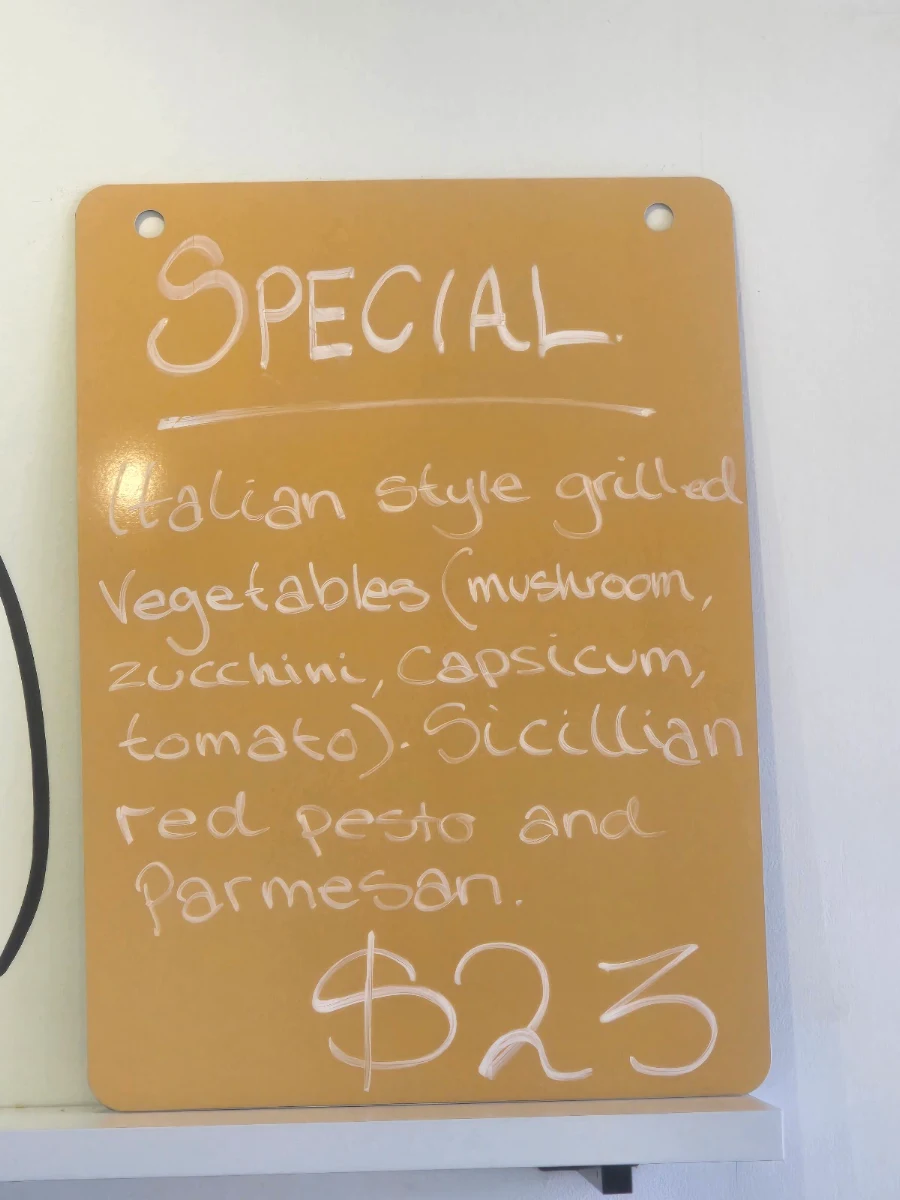 SPECIAL.
Italian style grilled
Vegetables (mushroom,
zucchini, Capsicum,
tomato). Sicillian
red pesto and
Parmesan.
$23